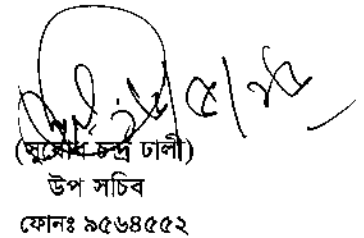 (সুবোধ চন্দ্র ঢালী)
উপ সচিব
ফোনঃ ৯৫৬৪৫৫২